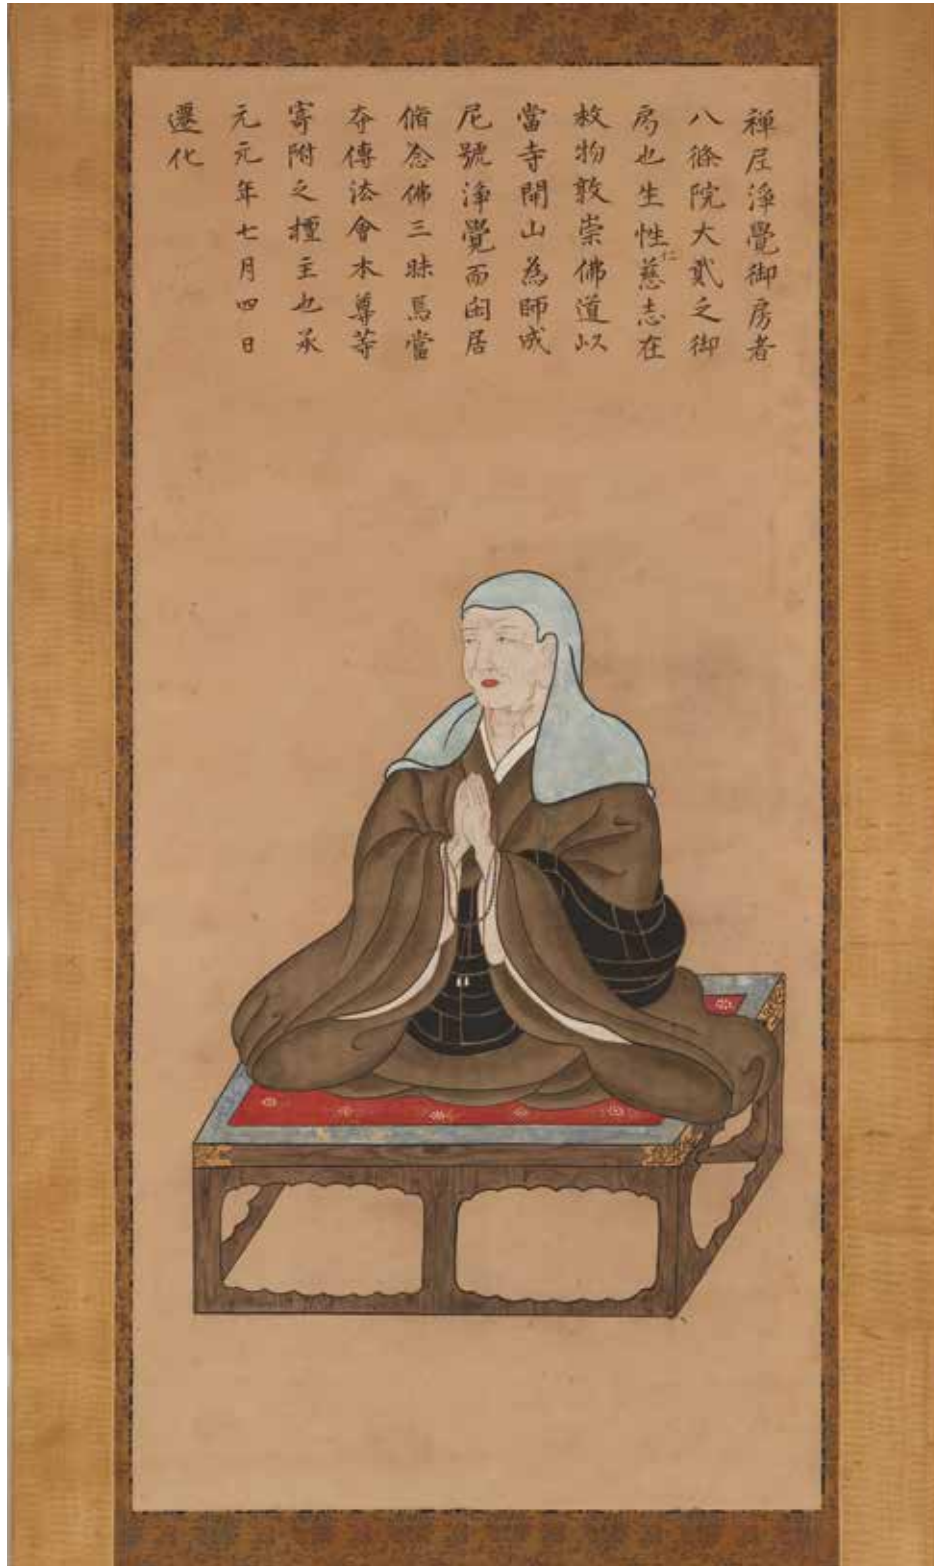 禅尼淨覺御房者
八條院大貳之御
房也生性仁慈志在
救物敦崇佛道以
當寺開山為師成
尼號淨覺而閑居
脩念佛三昧焉當
夲傳法會本尊等
寄附之檀主也承
元元年七月四日
遷化